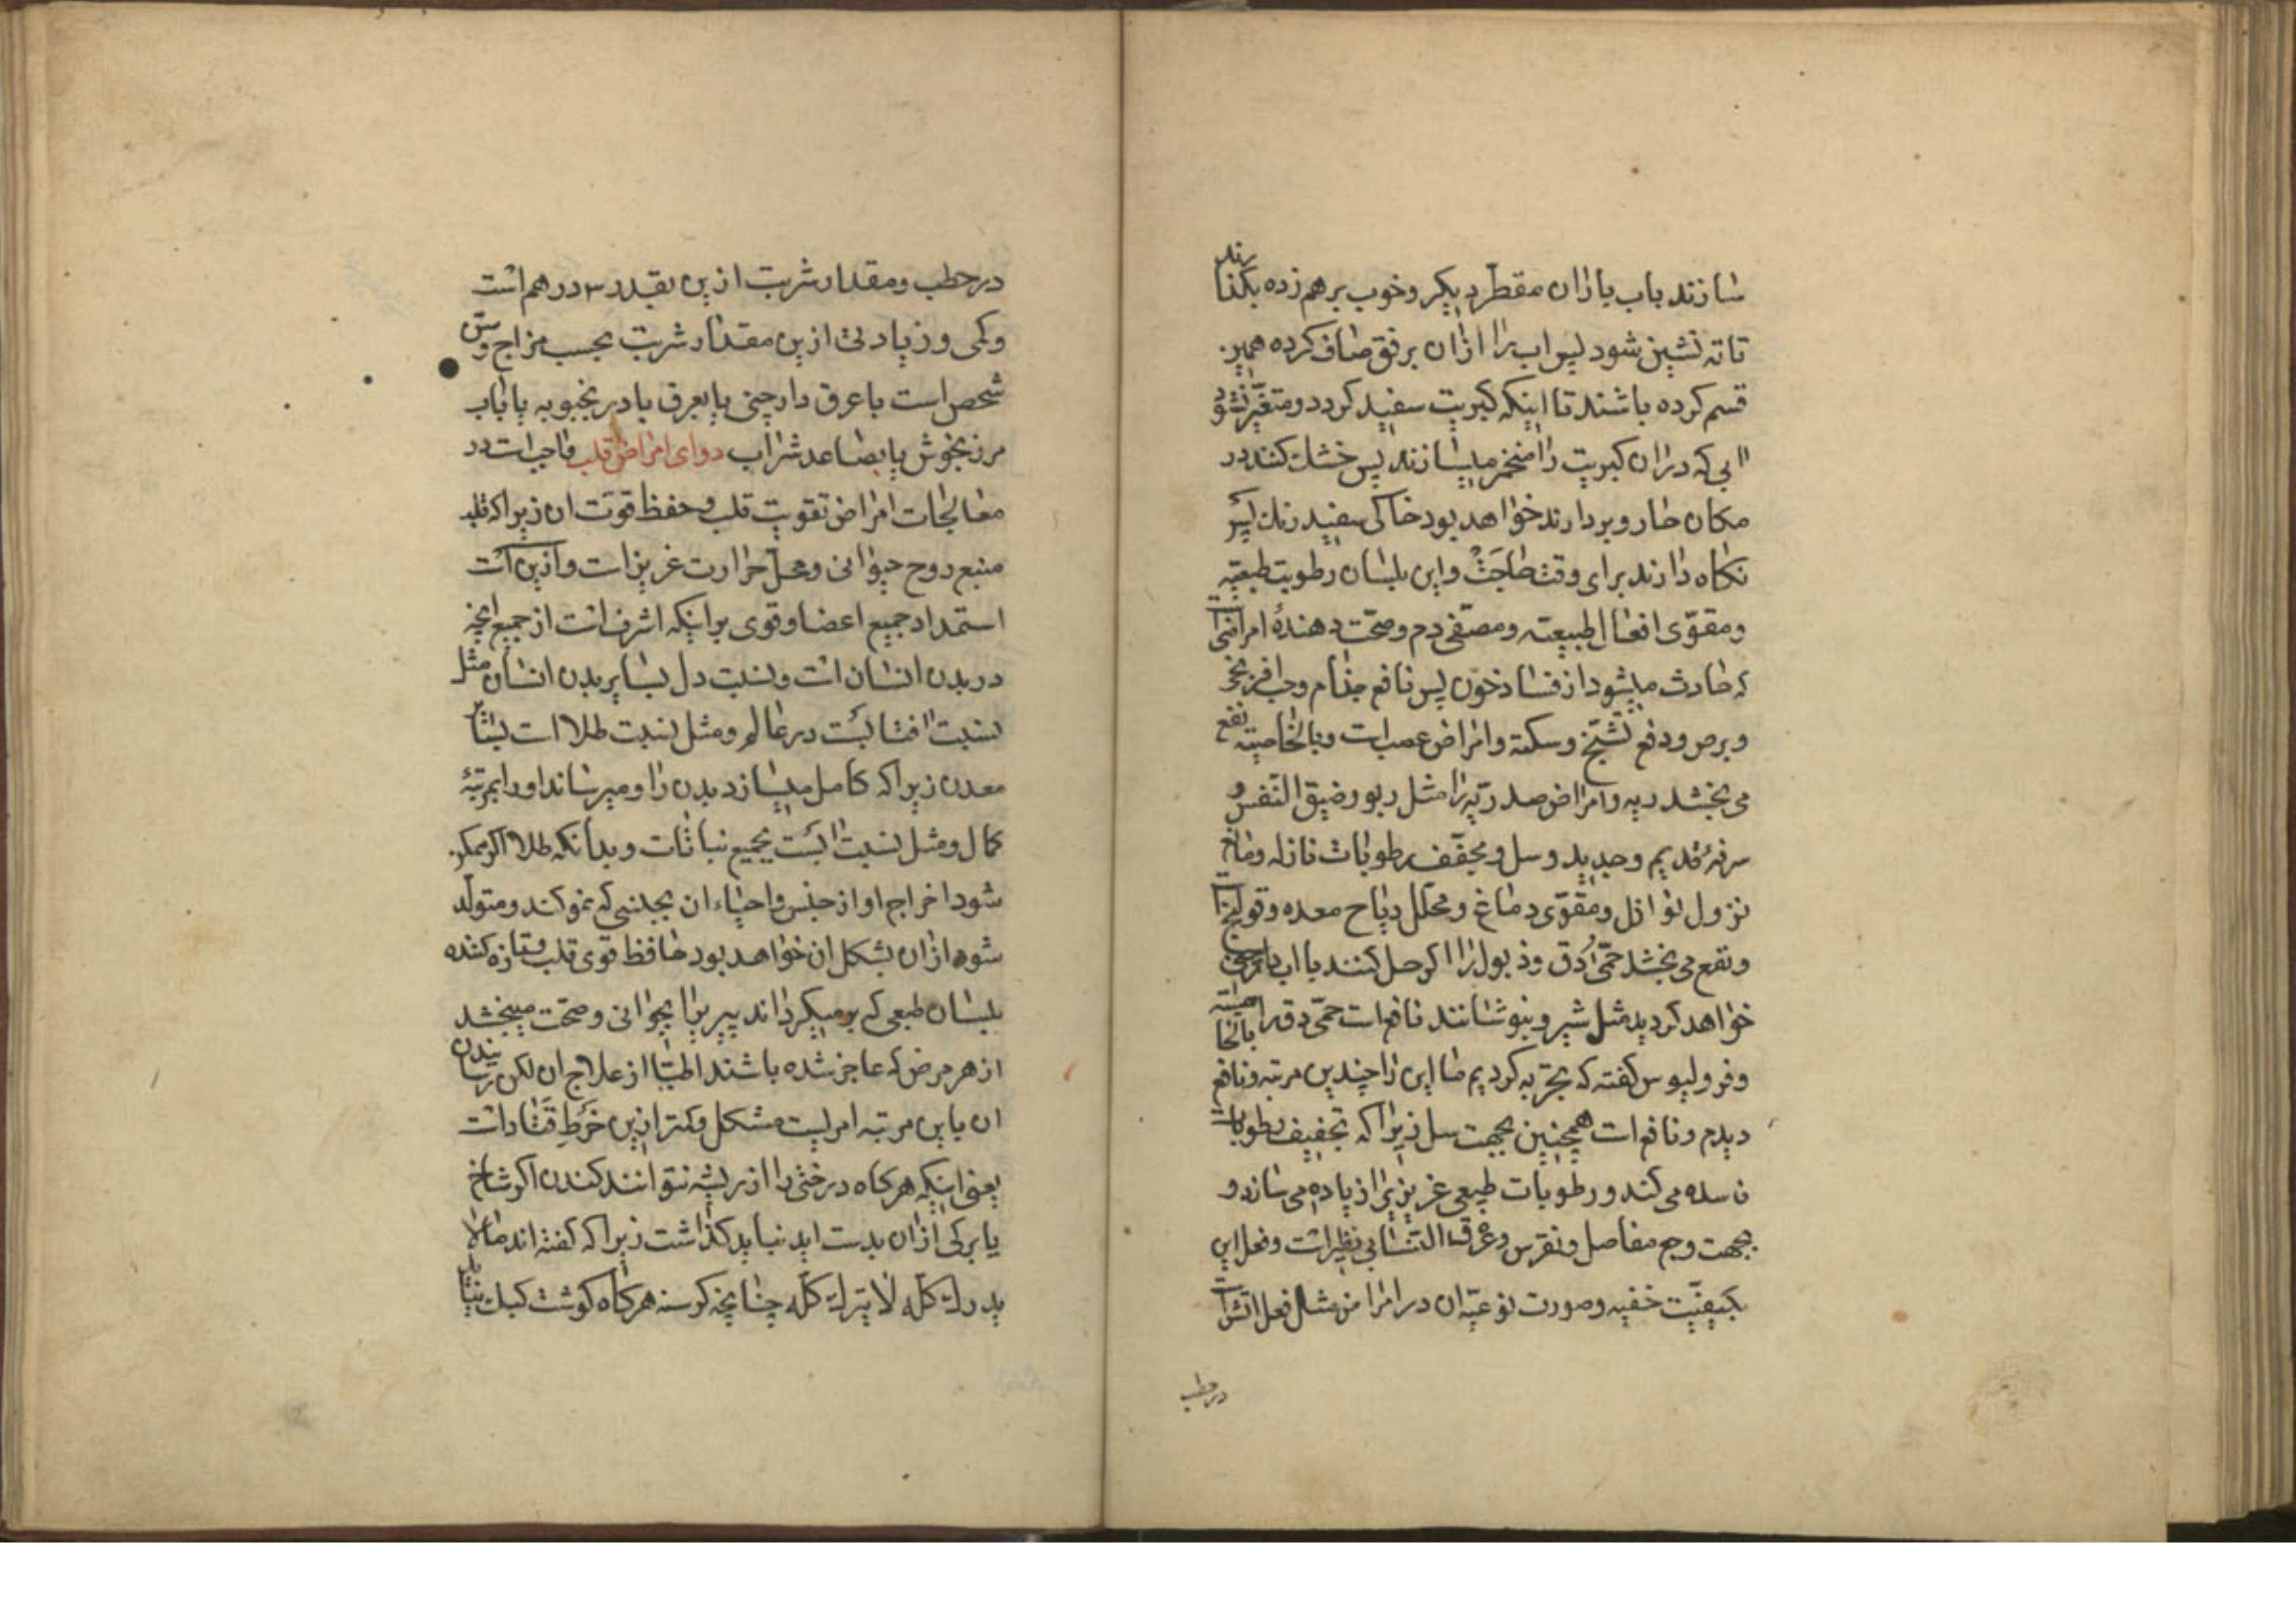 سازند باب باران مقطر دیکر و خوب برهم زده بکذارند
تا ته نشین شود پس اب را ازان برفق صاف کرده همین
قسم کرده باشند تا اینکه کبریت سفید کردد و متغیر نشود
ابی که دران کبریت را منخمر میسازند پس خشک کنند در
مکان حار و بردارند خواهد بود خاکی سفید رنک پس
نکاه دارند برای وقت حاجت و این بلسان رطوبت طبیعیه
و مقوّی افعال طبیعت و مصفّی دم و صحّت دهندهٔ امراضی
که حادث میشود از فساد خون پس نافع جذام و حب افرنجی
و برص و دفع تشنج و سکته و امراض عصب است و بالخاصیته نفع
می بخشد ریه و امراض صدریه را مثل ربو و ضیق النفس و
سرفهٔ قدیم و جدید و سل و مجفّف رطوبات نازله و مانع
نزول نوازل و مقوّی دماغ و محلّل ریاح معده و قولنج را
و نفع می بخشد حمّی دق و ذبول را اکر حل کنند با اب
خواهد کردید مثل شیر و بنوشانند نافع است حمّی دق را بالخاصیته
و فرولیوس کفته که تجربه کردیم ما این را چندین مرتبه و نافع
دیدم و نافع است همچنین بجهت سل زیرا که تجفیف رطوبات
فاسده می کند و رطوبات طبیعی غریزی را زیاده می سازد و
بجهت وجع مفاصل و نقرس و عرق النسا بی نظیر است و فعل این
بکیفیّت خفیه و صورت نوعیّه ان در امراض مثل فعل اتش است
درحطب
درحطب و مقدار شربت ازین بقدر ۳ درهم است
و کمی و زیادتی ازین مقدار شربت بحسب مزاج و سن
شخص است با عرق دارچینی یا بعرق بادرنجبویه یا باب
مرزنجوش یا بصاعد شراب دوای امراض قلب واجب است در
معالجات امراض تقویت قلب و حفظ قوت ان زیرا که قلب
منبع روح حیوانی و محل حرارت غریزات و ازین است
استمداد جمیع اعضا و قوی برای اینکه اشرف است از جمیع انچه
در بدن انسان است و نسبت دل بسایر بدن انسان مثل
نسبت افتابست در عالم و مثل نسبت طلا است بسایر
معدن زیرا که کامل میسازد بدن را و میرساند او را بمرتبهٔ
کمال و مثل نسبت بجمیع نباتات و بدانکه طلا اکر ممکن
شود اخراج او از جنس و احیاء ان بجنسی که نمو کند و متولّد
شود ازان بشکل ان خواهد بود حافظ قوی قلب و تازه کننده
بلسان طبعی که برمیکرداند پیر را بجوانی و صحّت میبخشد
از هر مرض که عاجز شده باشند اطبّا از علاج ان لکن رسانیدن
ان باین مرتبه امریست مشکل و کمتر ازین خَرط قتاد است
یعنی اینکه هرکاه درختی را از ریشه نتوانند کندن اکر شاخ
یا برکی ازان بدست اید نباید کذاشت زیرا که کفته اند مالا
یدرک کلّه لا یترک کلّه چنانچه کرسنه هرکاه کوشت کبک نیابد